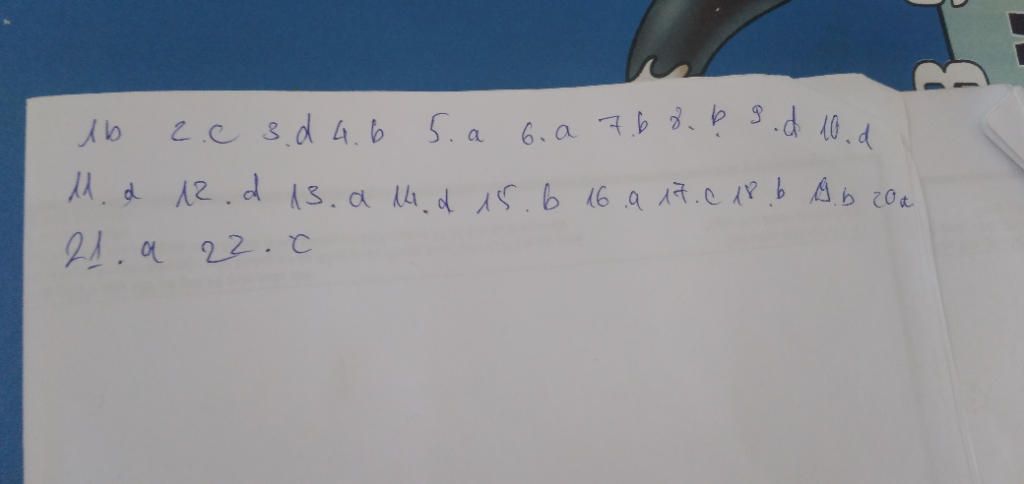 1b 2.c 3.d 4.b 5.a 6.a 7.b 8.b 9.d 10.d
11.a 12.d 13.a 14.d 15.b 16.a 17.c 18.b 19.b 20a
21.a 22.c